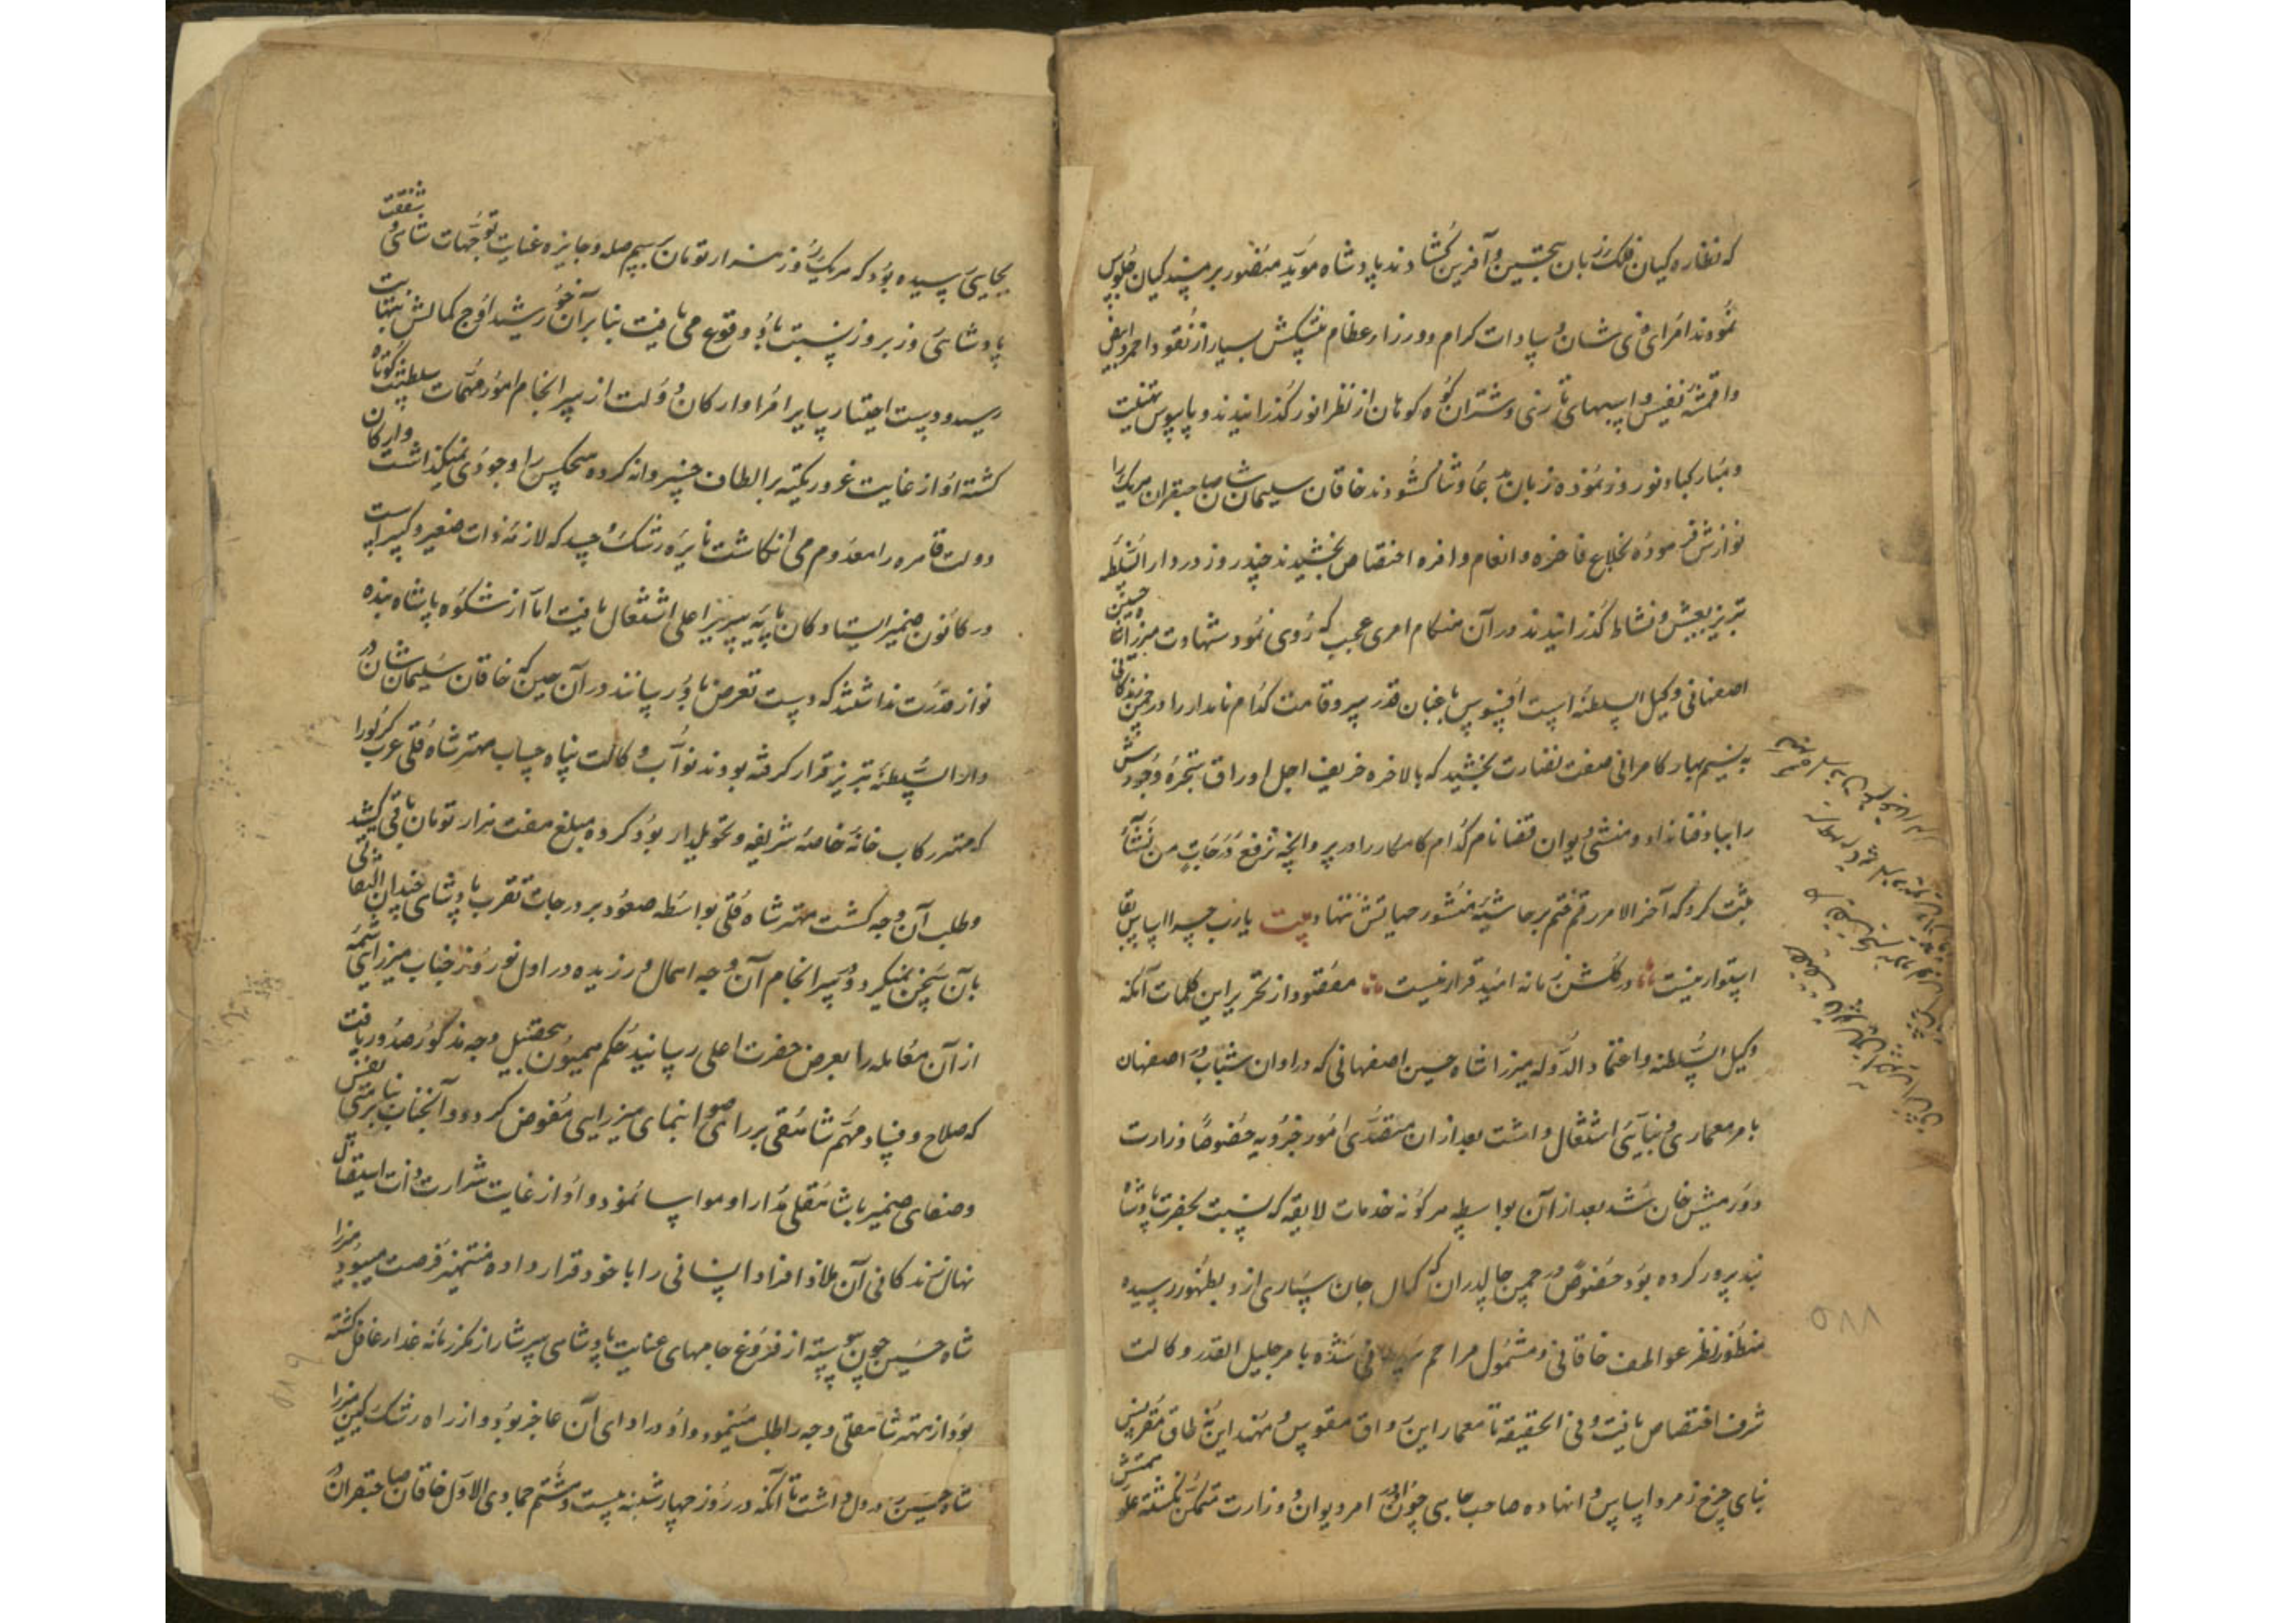 که نظاره کیان فلک زبان بتحسین و آفرین گشادند پادشاه مؤید منصور بر مسند کیان جلوس
نمودند امرای ذی شان و سادات کرام و وزراء عظام پیشکش بسیار از نقود احمر و ابیض
واقمشهٔ نفیس و اسبهای تازی و شتران کوه کوهان از نظر انور گذرانیدند و پابوس تهنیت
و مبارکباد نوروز نموده زبان بدعا و ثنا گشودند خاقان سلیمان شان صاحبقران هریک را
نوازش فرموده بخلاع فاخره و انعام وافره اختصاص بخشیدند چند روز در دار السلطنه
تبریز بعیش و نشاط گذرانیدند در آن هنگام امری عجب که روی نمود شهادت میرزا شاه حسین
اصفهانی وکیل السلطنه است افسوس باغبان قدر سرو قامت کدام نامدار را در چمن زندگانی
به نسیم بهار کامرانی صفت نضارت بخشید که بالاخره خریف اجل اوراق شجرهٔ وجودش
را بباد فنا نداد و منشی دیوان قضا نام کدام کامکار را در پروانچه نرفع درجات من نشاء
ثبت کرد که آخر الامر رقم ختم بر حاشیهٔ منشور حیاتش ننهاد بیت یارب چرا اساس بقا
استوار نیست در گلشن زمانه امید قرار نیست مقصود از تحریر این کلمات آنکه
وکیل السلطنه و اعتماد الدوله میرزا شاه حسین اصفهانی که در اوان شباب در اصفهان
بامر معماری و بنایی اشتغال داشت بعد از ان متصدی امور جزویه خصوصا وزارت
دورمیش خان شد بعد از آن بواسطه هرگونه خدمات لایقه که نسبت بحضرت پادشاه
بنده پرور کرده بود خصوص در چمن چالدران که کمال جان سپاری ازو بظهور رسیده
منظور نظر عواطف خاقانی و مشمول مراحم سلطانی شده بامر جلیل القدر وکالت
شرف اختصاص یافت و فی الحقیقه تا معمار این رواق مقوس و مهندس این نه طاق مقرنس
بنای چرخ زمرد اساس را نهاده صاحب جاهی چون او در امر دیوان و وزارت متمکن نگشته علو همتش
بجایی رسیده بود که هریک روز هزار تومان برسم صله و جایزه عنایت توجهات شاهی و شفقت
پادشاهی روز بروز نسبت باو وقوع می یافت بنابر آن خورشید اوج کمالش بنهایت
رسید و دست اختیار سایر امرا و ارکان دولت از سر انجام امور مهمات سلطنت کوتاه
گشته او از غایت غرور تکیه بر الطاف خسروانه کرده هیچکس را وجودی نمیگذاشت و ارکان
دولت قاهره را معدوم می انگاشت نایرهٔ رشک و حسد که لازمهٔ ذات صغیر و کبیر است
در کانون ضمیر ایستادگان پایهٔ سریر اعلی اشتعال یافت اما از شکوه پادشاه بنده
نواز قدرت نداشتند که دست تعرض باو رسانند در آن حین که خاقان سلیمان شان در
دار السلطنهٔ تبریز قرار گرفته بودند نواب وکالت پناه حساب مهتر شاه قلی عرب کرلو را
که مهتر رکاب خانهٔ خاصهٔ شریفه و تحویلدار بود کرده مبلغ هفت هزار تومان باقی کشید
و طلب آن وجه گشت مهتر شاه قلی بواسطه صعود بر درجات تقرب پادشاهی چندان التفاتی
بآن سخن نمیکرد و در سر انجام آن وجه اهمال ورزیده در اول نوروز جناب میرزایی شمهٔ
از آن معامله را بعرض حضرت اعلی رسانید حکم همیون بتحصیل وجه مذکور صدور یافت
که صلاح و فساد مهم شاه قلی بر رای صواب نمای میرزایی مفوض گردد و آنجناب بنابر حسن نفس
وصفای ضمیر با شاه قلی مدارا و مواسا نمود و او از غایت شرارت ذات استیصال
نهال زندگانی آن ملاذ افراد انسانی را با خود قرار داده منتهز فرصت میبود و میرزا
شاه حسین چون پیوسته از فروغ جامهای عنایت پادشاهی سرشار از مکر زمانهٔ غدار غافل گشته
بود از مهتر شاه قلی وجه را طلب مینمود و او در ادای آن عاجز بود و از راه رشک کین میرزا
شاه حسین در دل داشت تا آنکه در روز چهارشنبه بیست و هشتم جمادی الاول خاقان صاحبقران در